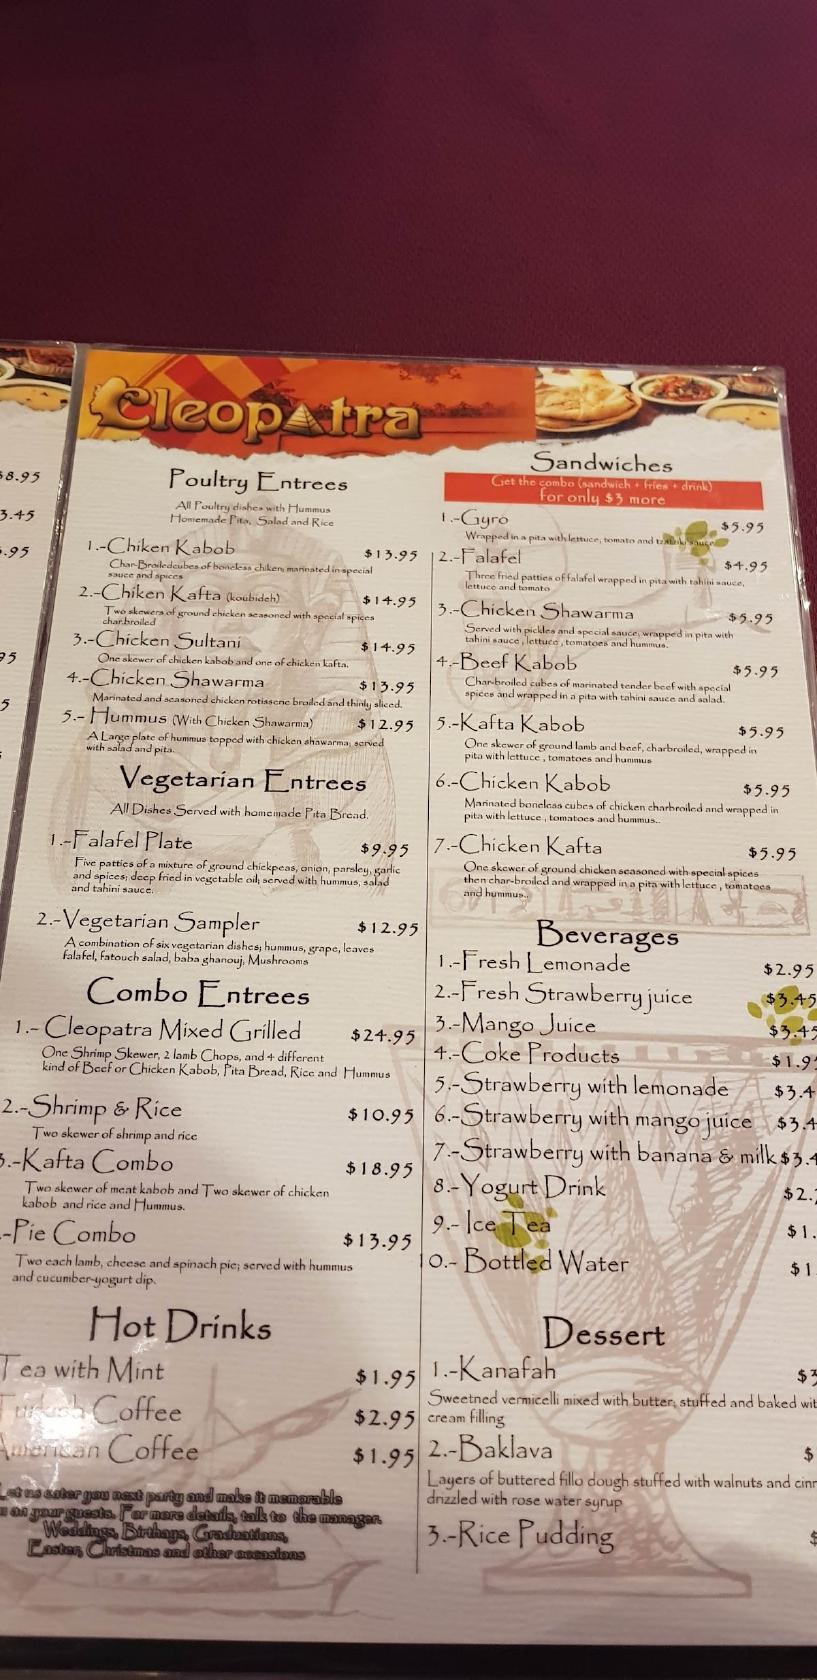 8.95
3.45
.95
95
5
Cleopatra
Poultry Entrees
All Poultry dishes with Hummus
Homemade Pita, Salad and Rice
1.-Chiken Kabob $13.95
Char-Broiledcubes of boneless chiken, marinated in special
sauce and spices
2.-Chiken Kafta (koubideh) $14.95
Two skewers of ground chicken seasoned with special spices
char.broiled
3.-Chicken Sultani $14.95
One skewer of chicken kabob and one of chicken kafta.
4.-Chicken Shawarma $13.95
Marinated and seasoned chicken rotisserie broiled and thinly sliced.
5.- Hummus (With Chicken Shawarma) $12.95
A Large plate of hummus topped with chicken shawarma; served
with salad and pita.
Vegetarian Entrees
All Dishes Served with homemade Pita Bread.
1.-Falafel Plate $9.95
Five patties of a mixture of ground chickpeas, onion, parsley, garlic
and spices; deep fried in vegetable oil; served with hummus, salad
and tahini sauce.
2.-Vegetarian Sampler $12.95
A combination of six vegetarian dishes; hummus, grape, leaves
falafel, fatouch salad, baba ghanouj, Mushrooms
Combo Entrees
1.- Cleopatra Mixed Grilled $24.95
One Shrimp Skewer, 2 lamb Chops, and 4 different
kind of Beef or Chicken Kabob, Pita Bread, Rice and Hummus
2.-Shrimp & Rice $10.95
Two skewer of shrimp and rice
3.-Kafta Combo $18.95
Two skewer of meat kabob and Two skewer of chicken
kabob and rice and Hummus.
.-Pie Combo $13.95
Two each lamb, cheese and spinach pie; served with hummus
and cucumber-yogurt dip.
Hot Drinks
Tea with Mint $1.95
Turkish Coffee $2.95
American Coffee $1.95
Let us cater you next party and make it memorable
as your guests. For more details, talk to the manager.
Weddings, Birthays, Graduations,
Easter, Christmas and other occasions
Sandwiches
Get the combo (sandwich + fries + drink)
for only $3 more
1.-Gyro $5.95
Wrapped in a pita with lettuce, tomato and tzatziki sauce
2.-Falafel $4.95
Three fried patties of falafel wrapped in pita with tahini sauce,
lettuce and tomato
3.-Chicken Shawarma $5.95
Served with pickles and special sauce, wrapped in pita with
tahini sauce, lettuce, tomatoes and hummus.
4.-Beef Kabob $5.95
Char-broiled cubes of marinated tender beef with special
spices and wrapped in a pita with tahini sauce and salad.
5.-Kafta Kabob $5.95
One skewer of ground lamb and beef, charbroiled, wrapped in
pita with lettuce , tomatoes and hummus
6.-Chicken Kabob $5.95
Marinated boneless cubes of chicken charbroiled and wrapped in
pita with lettuce , tomatoes and hummus..
7.-Chicken Kafta $5.95
One skewer of ground chicken seasoned with special spices
then char-broiled and wrapped in a pita with lettuce , tomatoes
and hummus..
Beverages
1.-Fresh Lemonade $2.95
2.-Fresh Strawberry juice $3.45
3.-Mango Juice $3.45
4.-Coke Products $1.9
5.-Strawberry with lemonade $3.4
6.-Strawberry with mango juice $3.4
7.-Strawberry with banana & milk $3.4
8.-Yogurt Drink $2.
9.- Ice Tea $1.
10.- Bottled Water $1
Dessert
1.-Kanafah $3
Sweetned vermicelli mixed with butter; stuffed and baked wit
cream filling
2.-Baklava $
Layers of buttered fillo dough stuffed with walnuts and cinn
drizzled with rose water syrup
3.-Rice Pudding $